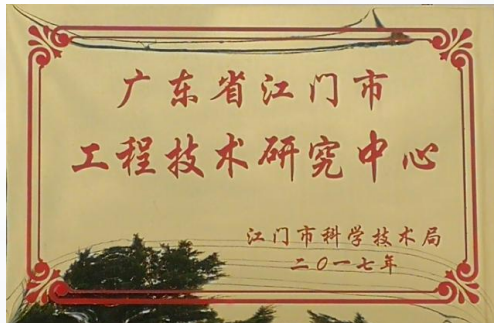 广东省江门市
工程技术研究中心
江门市科学技术局
二〇一七年